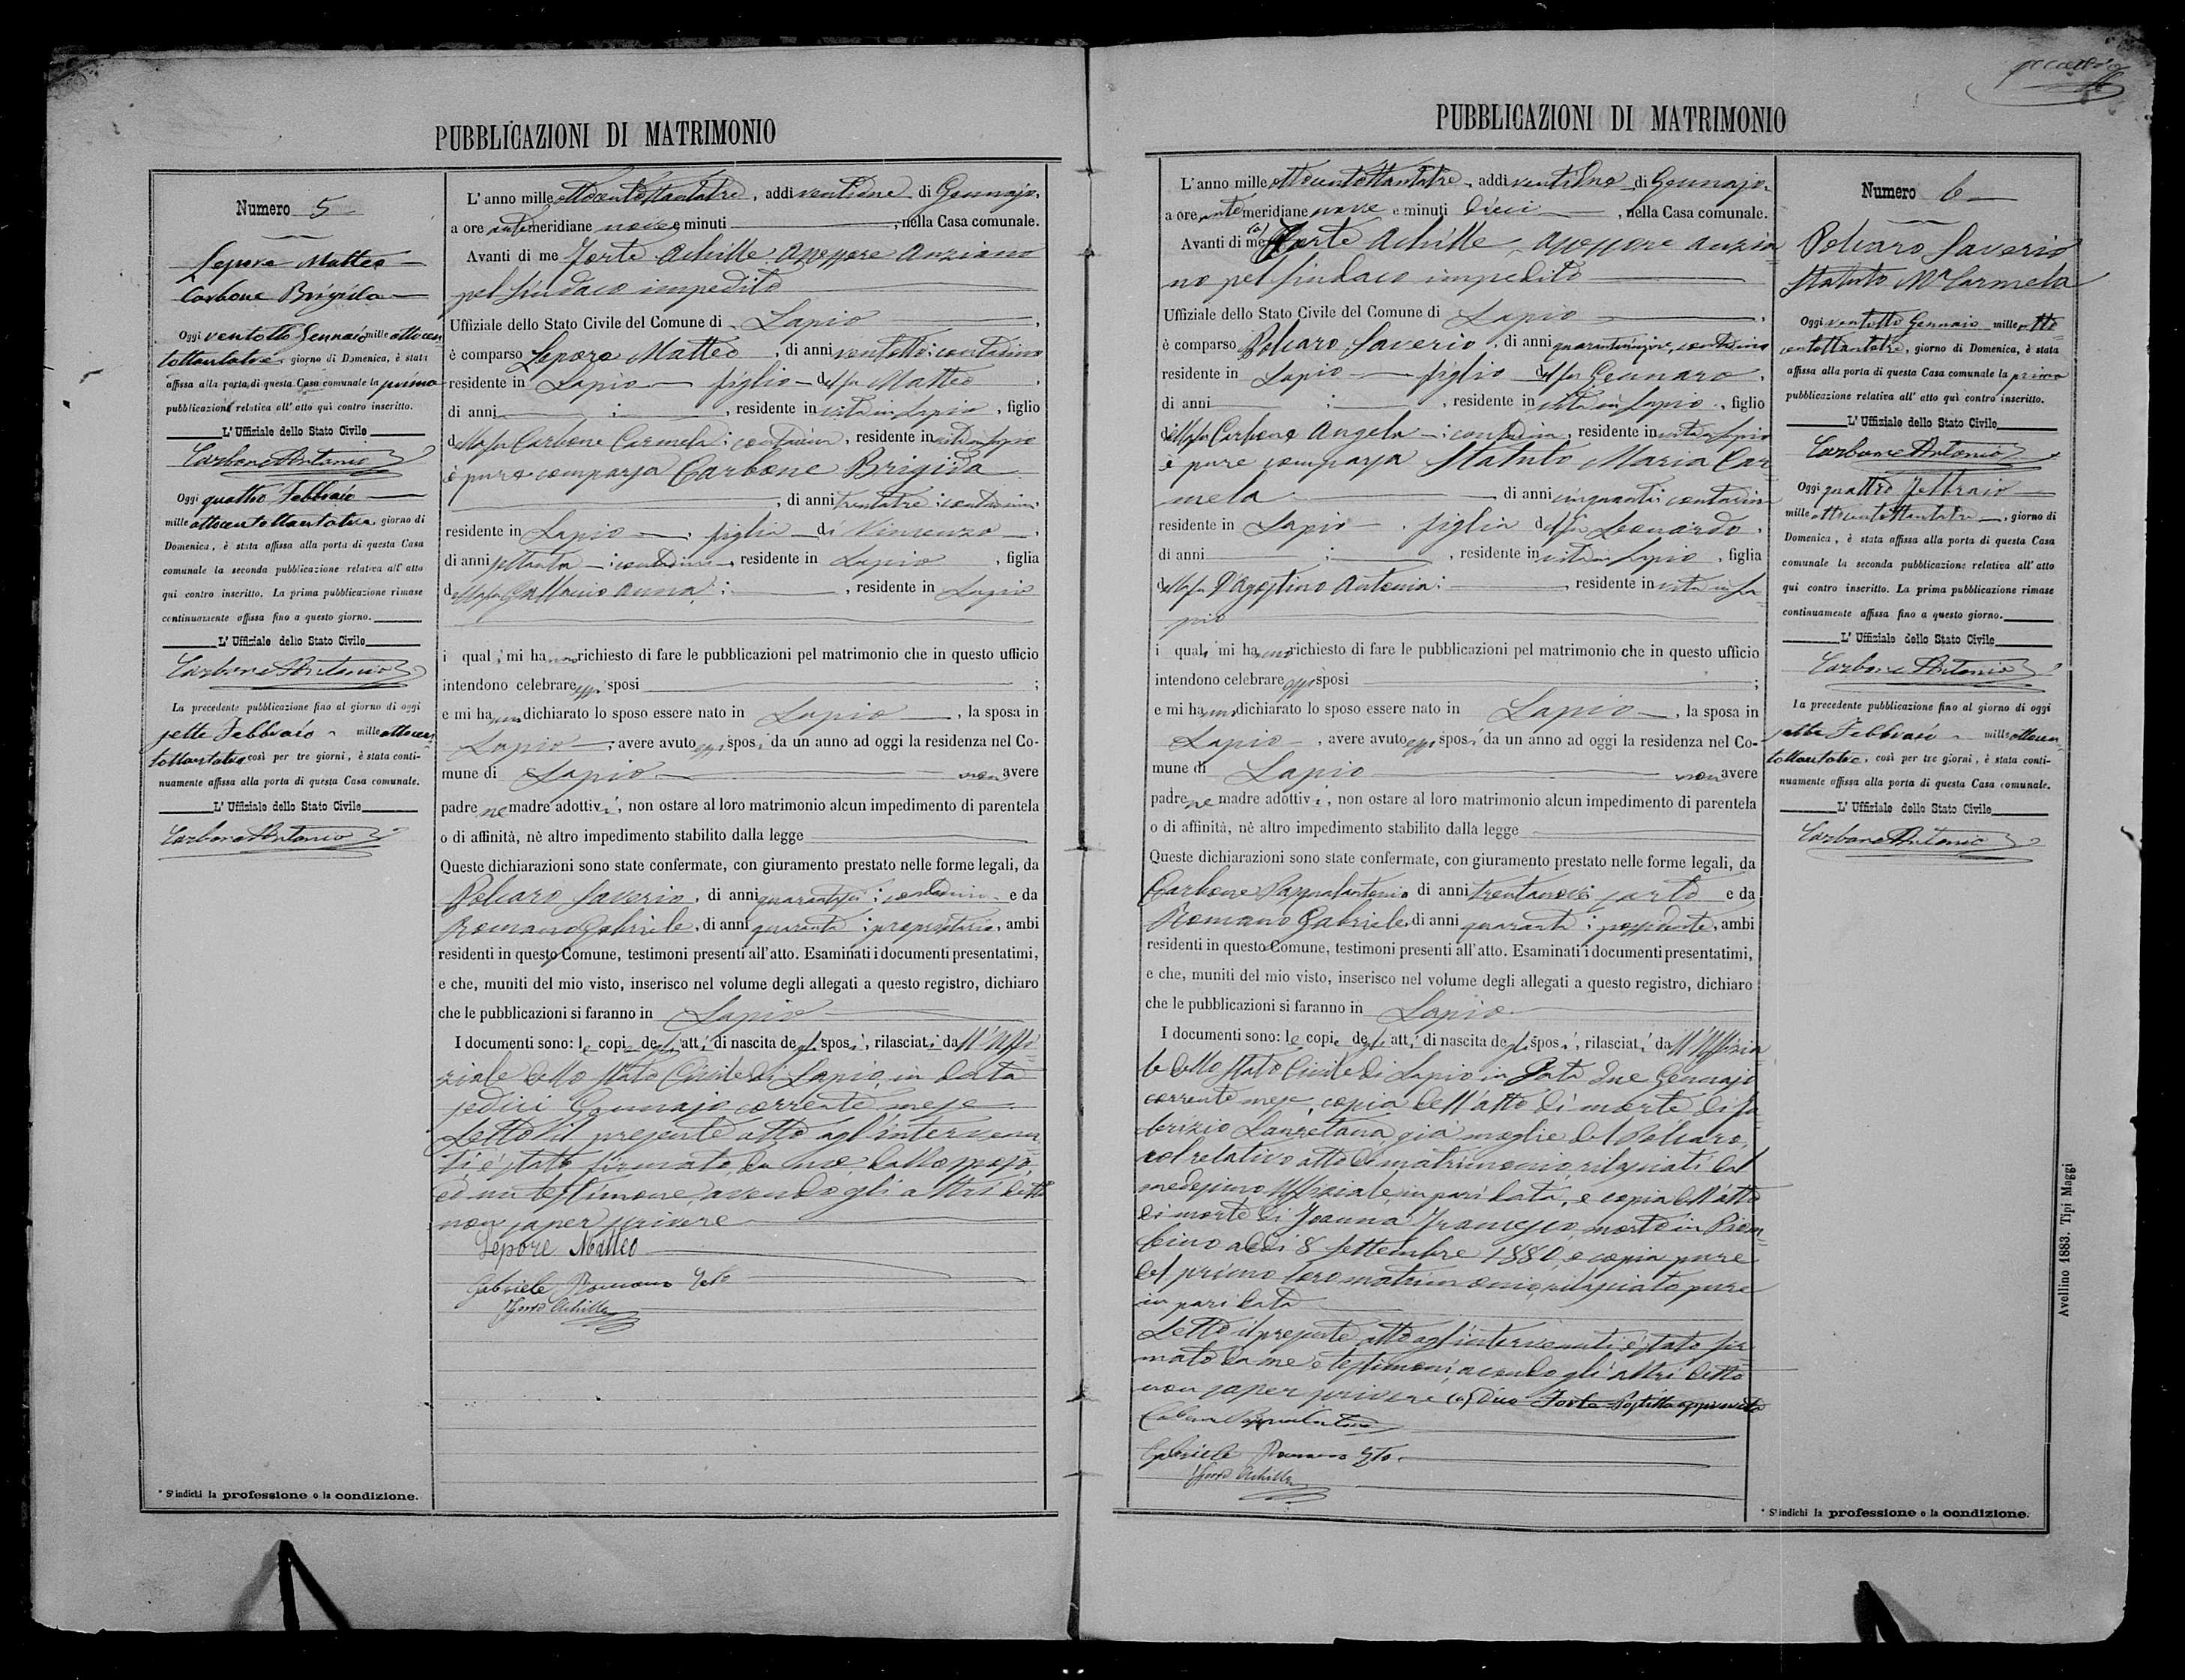 PUBBLICAZIONI DI MATRIMONIO
Numero 5
Lepore Matteo
Carbone Brigida
Oggi ventotto Gennaio mille ottocen
tottantatre, giorno di Domenica, è stata
affissa alla porta di questa Casa comunale la prima
pubblicazione relativa all' atto quì contro inscritto.
L' Uffiziale dello Stato Civile
Carbone Antonio
Oggi quattro Febbraio
mille ottocentottantatre, giorno di
Domenica, è stata affissa alla porta di questa Casa
comunale la seconda pubblicazione relativa all' atto
qui contro inscritto. La prima pubblicazione rimase
continuamente affissa fino a questo giorno.
L' Uffiziale dello Stato Civile
Carbone Antonio
La precedente pubblicazione fino al giorno di oggi
sette Febbraio mille ottocen
tottantatre così per tre giorni, è stata conti-
nuamente affissa alla porta di questa Casa comunale.
L' Uffiziale dello Stato Civile
Carbone Antonio
* S' indichi la professione o la condizione.
L' anno mille ottocentottantatre, addì ventuno di Gennajo
a ore antimeridiane nove e minuti , nella Casa comunale.
Avanti di me Forte Achille Assessore Anziano
pel Sindaco impedito
Uffiziale dello Stato Civile del Comune di Lapio,
è comparso Lepore Matteo, di anni ventotto: contadino
residente in Lapio figlio del fu Matteo,
di anni : , residente in vita in Lapio, figlio
della fu Carbone Carmela: contadina, residente in vita in Lapio
è pure comparsa Carbone Brigida
, di anni trentatre: contadina
residente in Lapio, figlia di Vincenzo,
di anni settanta: contadino, residente in Lapio, figlia
della fu Anna: , residente in Lapio
i quali mi hanno richiesto di fare le pubblicazioni pel matrimonio che in questo ufficio
intendono celebrare essi sposi ;
e mi hanno dichiarato lo sposo essere nato in Lapio, la sposa in
Lapio; avere avuto essi sposi da un anno ad oggi la residenza nel Co-
mune di Lapio non avere
padre nè madre adottivi, non ostare al loro matrimonio alcun impedimento di parentela
o di affinità, nè altro impedimento stabilito dalla legge
Queste dichiarazioni sono state confermate, con giuramento prestato nelle forme legali, da
Polcaro Saverio, di anni quarantasei: contadino e da
Romano Gabriele, di anni quaranta: proprietario, ambi
residenti in questo Comune, testimoni presenti all'atto. Esaminati i documenti presentatimi,
e che, muniti del mio visto, inserisco nel volume degli allegati a questo registro, dichiaro
che le pubblicazioni si faranno in Lapio
I documenti sono: le copie degli atti di nascita degli sposi, rilasciati dall'Uffi-
ziale dello Stato Civile di Lapio in data
sedici Gennajo corrente mese
Letto il presente atto agl'intervenu-
ti è stato firmato da me, dallo sposo,
ed un testimone, avendo gli altri detto
non saper scrivere
Lepore Matteo
Gabriele Romano Tsto
Forte Achille
PUBBLICAZIONI DI MATRIMONIO
L' anno mille ottocentottantatre, addì ventuno di Gennajo
a ore antimeridiane nove e minuti dieci, nella Casa comunale.
Avanti di me (a) Forte Achille, Assessore Anzia-
no pel Sindaco impedito
Uffiziale dello Stato Civile del Comune di Lapio,
è comparso Polcaro Saverio, di anni, contadino
residente in Lapio figlio del fu Gennaro,
di anni : , residente in vita in Lapio, figlio
della fu Carbone Angela: contadina, residente in vita in Lapio
è pure comparsa Statuto Maria Car
mela di anni cinquanta: contadina
residente in Lapio, figlia del fu Leonardo,
di anni : , residente in vita in Lapio, figlia
della fu D'Agostino Antonia: , residente in vita in La-
pio
i quali mi hanno richiesto di fare le pubblicazioni pel matrimonio che in questo ufficio
intendono celebrare essi sposi ;
e mi hanno dichiarato lo sposo essere nato in Lapio, la sposa in
Lapio, avere avuto essi sposi da un anno ad oggi la residenza nel Co-
mune di Lapio non avere
padre nè madre adottivi, non ostare al loro matrimonio alcun impedimento di parentela
o di affinità, nè altro impedimento stabilito dalla legge
Queste dichiarazioni sono state confermate, con giuramento prestato nelle forme legali, da
Carbone Pasqualantonio di anni trentanove: sarto e da
Romano Gabriele, di anni quaranta: possidente, ambi
residenti in questo Comune, testimoni presenti all'atto. Esaminati i documenti presentatimi,
e che, muniti del mio visto, inserisco nel volume degli allegati a questo registro, dichiaro
che le pubblicazioni si faranno in Lapio
I documenti sono: le copie degli atti di nascita degli sposi, rilasciati dall'Uffizia-
le dello Stato Civile di Lapio in data due Gennajo
corrente mese, copia dell'atto di morte di Fa-
brizio Lauretana, già moglie del Polcaro,
col relativo atto di matrimonio, rilasciati dal
medesimo Uffiziale in pari data, e copia dell'atto
di morte di Joanna Francesco, morto in Piom-
bino addì 8 Settembre 1880, e copia pure
del primo loro matrimonio, rilasciato pure
in pari data
Letto il presente atto agl'intervenuti è stato fir-
mato da me e testimoni, avendo gli altri detto
non saper scrivere (a) dico Forte Postilla approvata
Carbone Pasqualantonio
Gabriele Romano Tsto
Forte Achille
Numero 6
Polcaro Saverio
Statuto Ma Carmela
Oggi ventotto Gennaio mille otto
centottantatre, giorno di Domenica, è stata
affissa alla porta di questa Casa comunale la prima
pubblicazione relativa all' atto quì contro inscritto.
L' Uffiziale dello Stato Civile
Carbone Antonio
Oggi quattro Febbraio
mille ottocentottantatre, giorno di
Domenica, è stata affissa alla porta di questa Casa
comunale la seconda pubblicazione relativa all' atto
qui contro inscritto. La prima pubblicazione rimase
continuamente affissa fino a questo giorno.
L' Uffiziale dello Stato Civile
Carbone Antonio
La precedente pubblicazione fino al giorno di oggi
sette Febbraio mille ottocen-
tottantatre, così per tre giorni, è stata conti-
nuamente affissa alla porta di questa Casa comunale.
L' Uffiziale dello Stato Civile
Carbone Antonio
* S' indichi la professione o la condizione.
Avellino 1883. Tipi Maggi